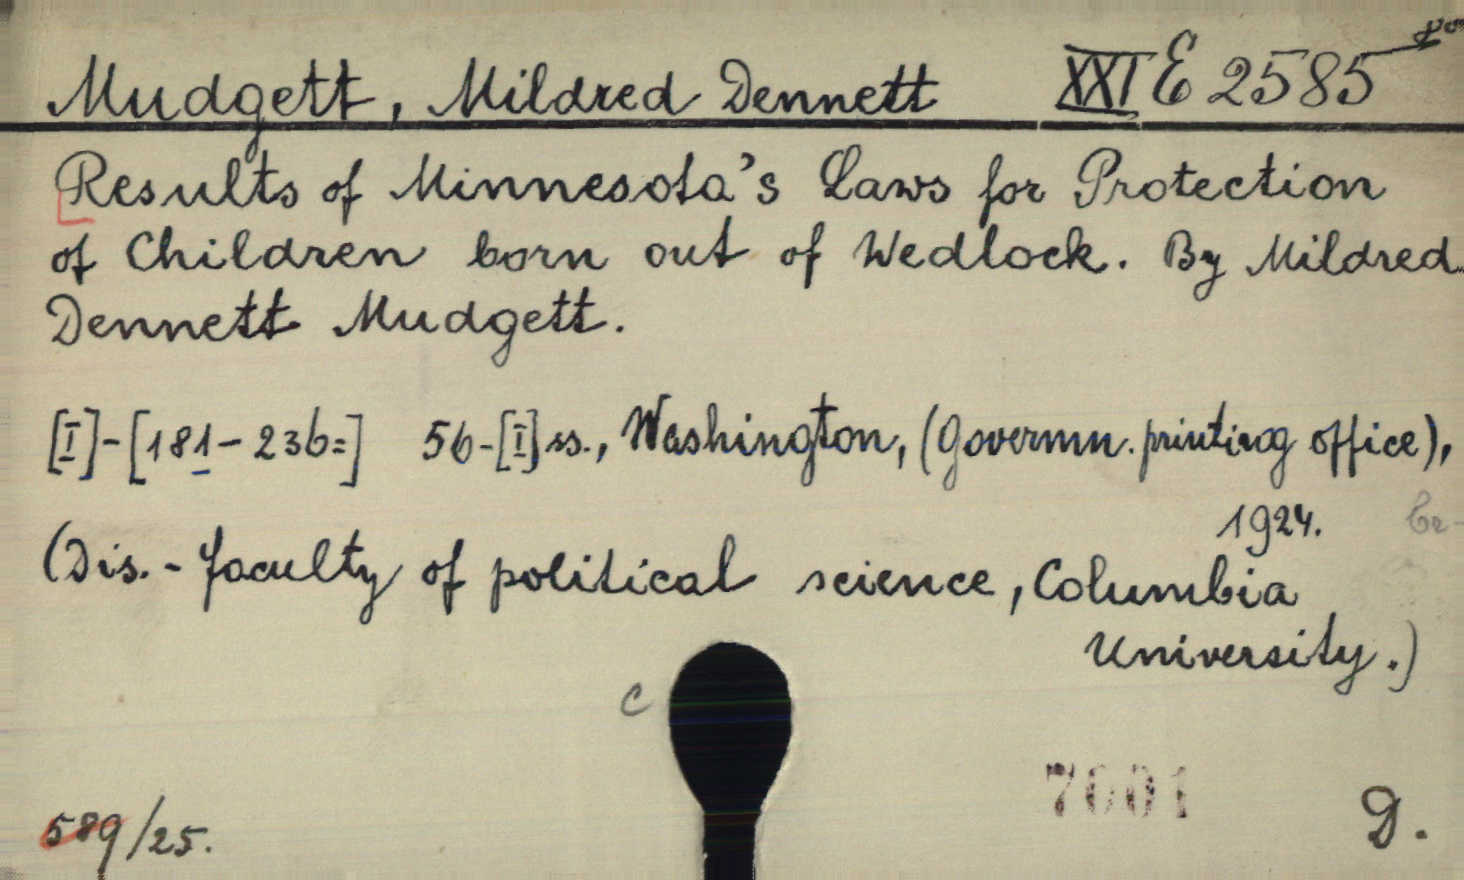 Mudgett, Mildred Dennett XXI E 2585
Results of Minnesota's Laws for Protection
of Children born out of Wedlock. By Mildred
Dennett Mudgett.
[I]-[181-236=] 56-[I] ss., Washington, (Governm. printing office),
1924.
(Dis. - faculty of political science, Columbia
University.)
C
7001
589/25.
D.